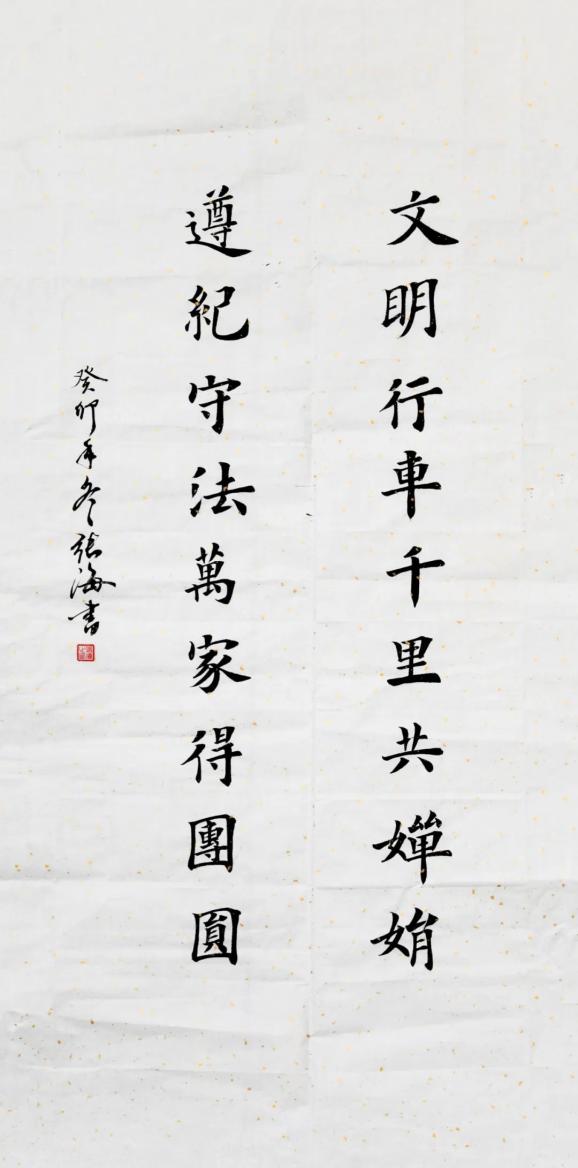 文明行車千里共嬋娟
遵紀守法萬家得團圓
癸卯年冬張海書